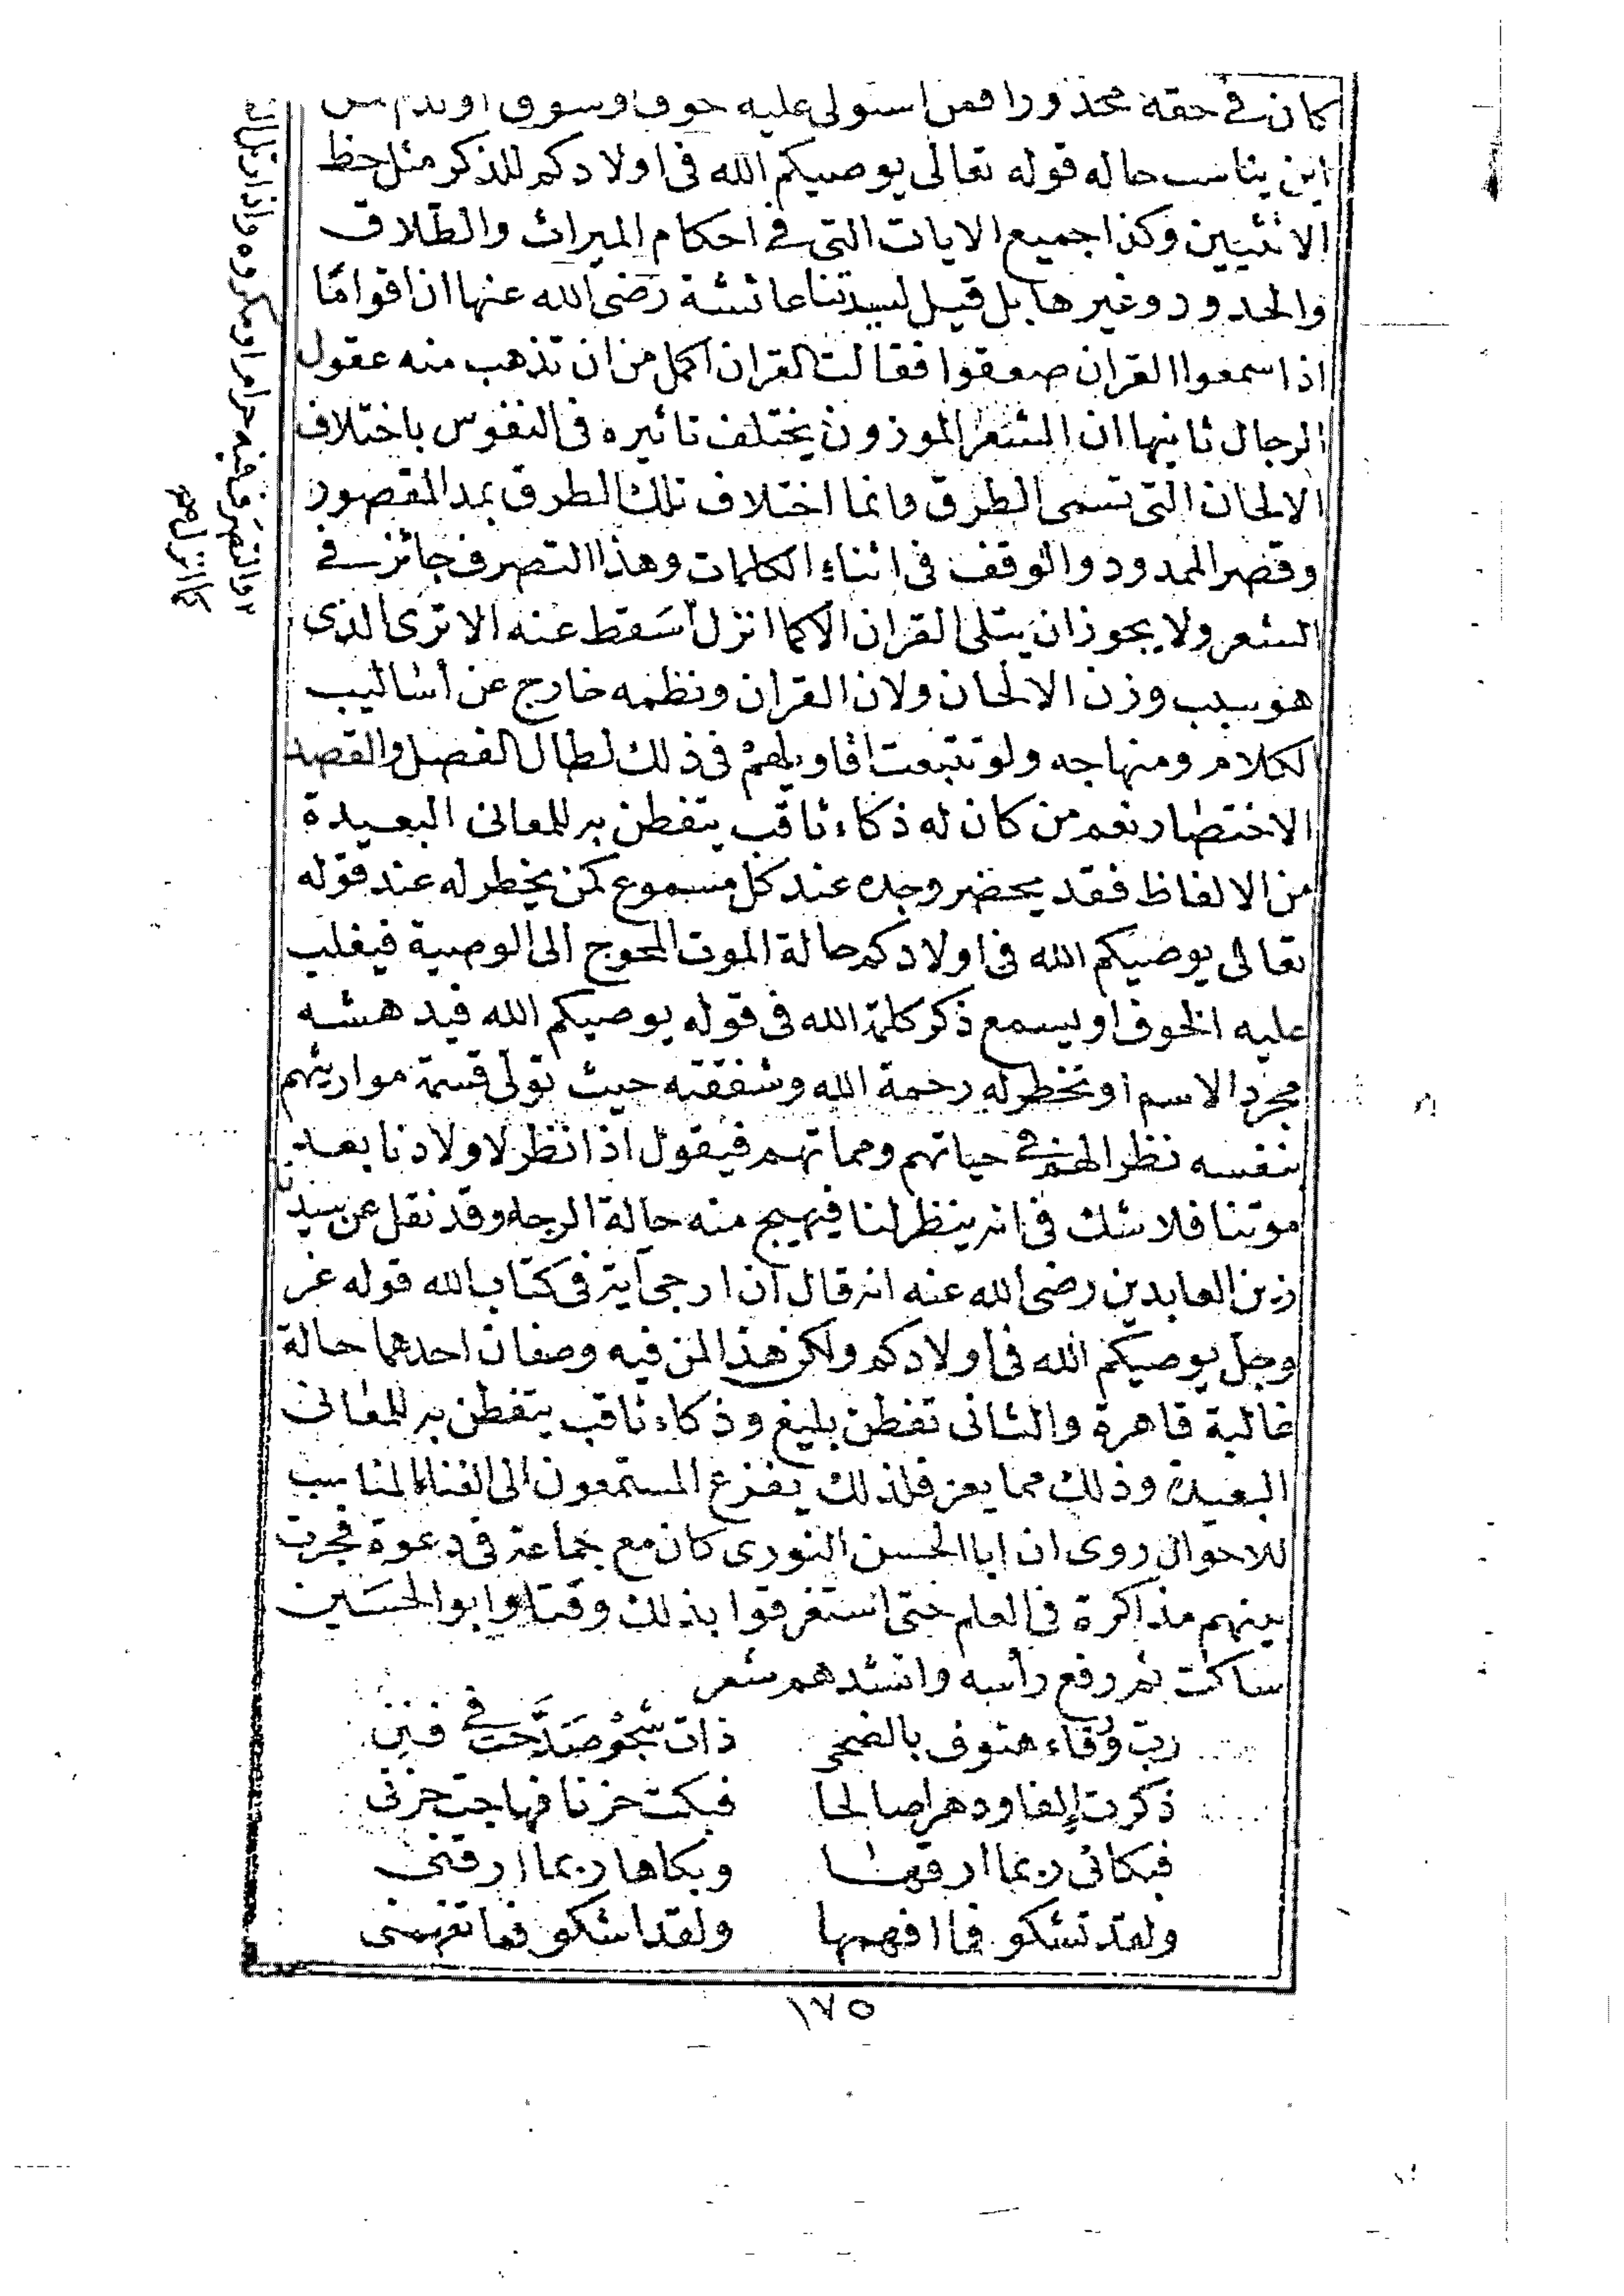 كان في حقه محذورا فمن استولى عليه خوف او سوق او ندم من
اين يناسب حاله قوله تعالى يوصيكم الله فى اولادكم للذكر مثل حظ
الانثيين وكذا جميع الايات التى في احكام الميراث والطلاق
والحدود وغيرها بل قيل لسيدتنا عائشة رضى الله عنها ان اقواما
اذا سمعوا القران صعقوا فقالت القران اكمل من ان تذهب منه عقول
الرجال ثانيها ان الشعر الموزون يختلف تاثيره فى النفوس باختلاف
الالحان التى تسمى الطرق وانما اختلاف تلك الطرق بمد المقصور
وقصر الممدود والوقف فى اثناء الكلمات وهذا التصرف جائز في
الشعر ولا يجوز ان يتلى القران الا كما انزل سقط عنه الا ترى الذى
هو سبب وزن الالحان ولان القران ونظمه خارج عن أساليب
الكلام ومنهاجه ولو تتبعت اقاويلهم فى ذلك لطال الفصل والقصد
الاختصار نعم من كان له ذكاء ثاقب يتفطن به للمعانى البعيدة
من الالفاظ فقد يحضر وجده عند كل مسموع كمن يخطر له عند قوله
تعالى يوصيكم الله فى اولادكم حالة الموت المحوج الى الوصية فيغلب
عليه الخوف او يسمع ذكر كلمة الله فى قوله يوصيكم الله فيدهشه
مجرد الاسم او تخطر له رحمة الله وشفقته حيث تولى قسمة مواريثهم
بنفسه نظرا لهم في حياتهم ومماتهم فيقول اذا نظر لاولادنا بعد
موتنا فلا شك فى انه ينظر لنا فيهيج منه حالة الرجا وقد نقل عن سيدنا
زين العابدين رضى الله عنه انه قال ان ارجى آية فى كتاب الله قوله عز
وجل يوصيكم الله فى اولادكم ولكن هذا لمن فيه وصفان احدهما حالة
غالبة قاهرة والثانى تفطن بليغ وذكاء ثاقب يتفطن به للمعانى
البعيدة وذلك مما يعز فلذلك يفزع المستمعون الى الغناء المناسب
للاحوال روى ان ابا الحسن النورى كان مع جماعة فى دعوة فجرت
بينهم مذاكرة فى العلم حتى استغرقوا بذلك وقتا وابو الحسين
ساكت ثم رفع رأسه وانشدهم شعر
رب ورقاء هتوف بالضحى ذات شجو صدحت في فنن
ذكرت إلفا ودهرا صالحا فبكت حزنا فهاجت حزنى
فبكائى ربما ارقها وبكاها ربما ارقنى
ولقد تشكو فما افهمها ولقد اشكو فما تفهمنى
١٧٥
والتصرف فيه حرام او مكروه واذا رتل القران
كما انزل صح